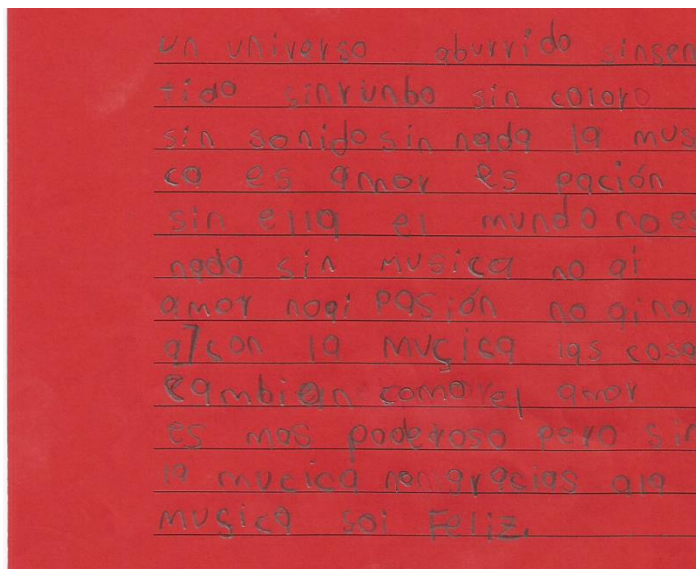 un universo aburrido sinsen
tido sinrunbo sin coloro
sin sonido sin nada la mus
ca es amor es pación
sin ella el mundo no es
nada sin musica no ai
amor noai Pasión no aina
a7con la muçica las cosa
cambian como el amor
es mas poderoso pero sin
la mucica non gracias ala
musica soi Feliz.